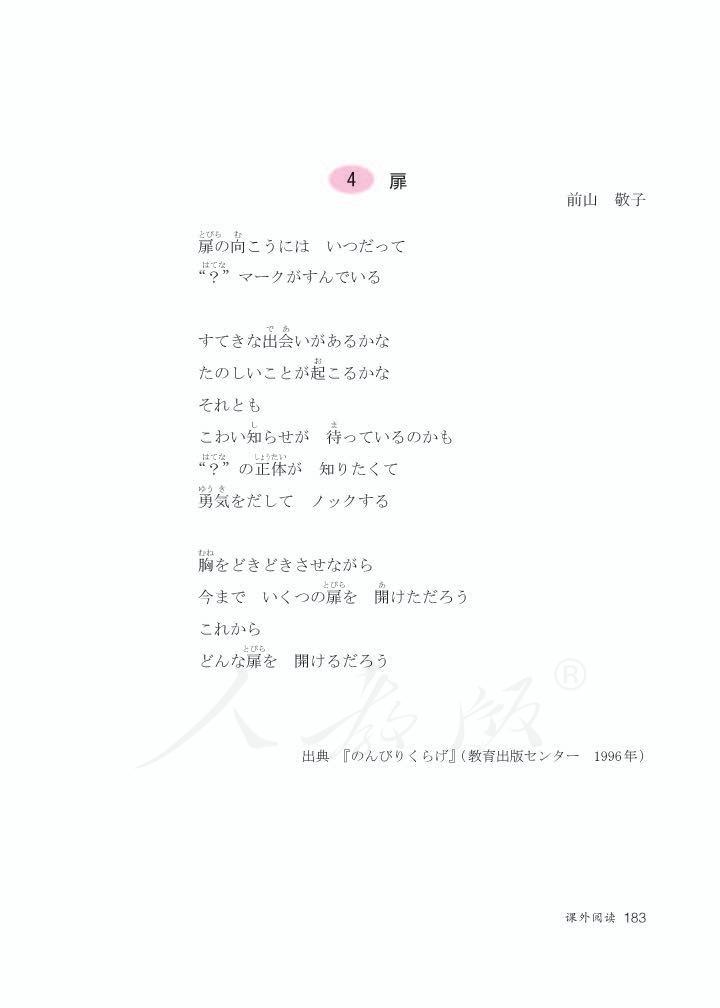 4 扉
前山 敬子
扉の向こうには いつだって
“？”マークがすんでいる
すてきな出会いがあるかな
たのしいことが起こるかな
それとも
こわい知らせが 待っているのかも
“？”の正体が 知りたくて
勇気をだして ノックする
胸をどきどきさせながら
今まで いくつの扉を 開けただろう
これから
どんな扉を 開けるだろう
人教版®
出典 『のんびりくらげ』（教育出版センター 1996年）
课外阅读 183